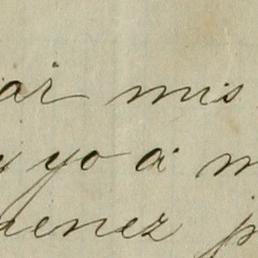 ar mis
yo á m
enez p